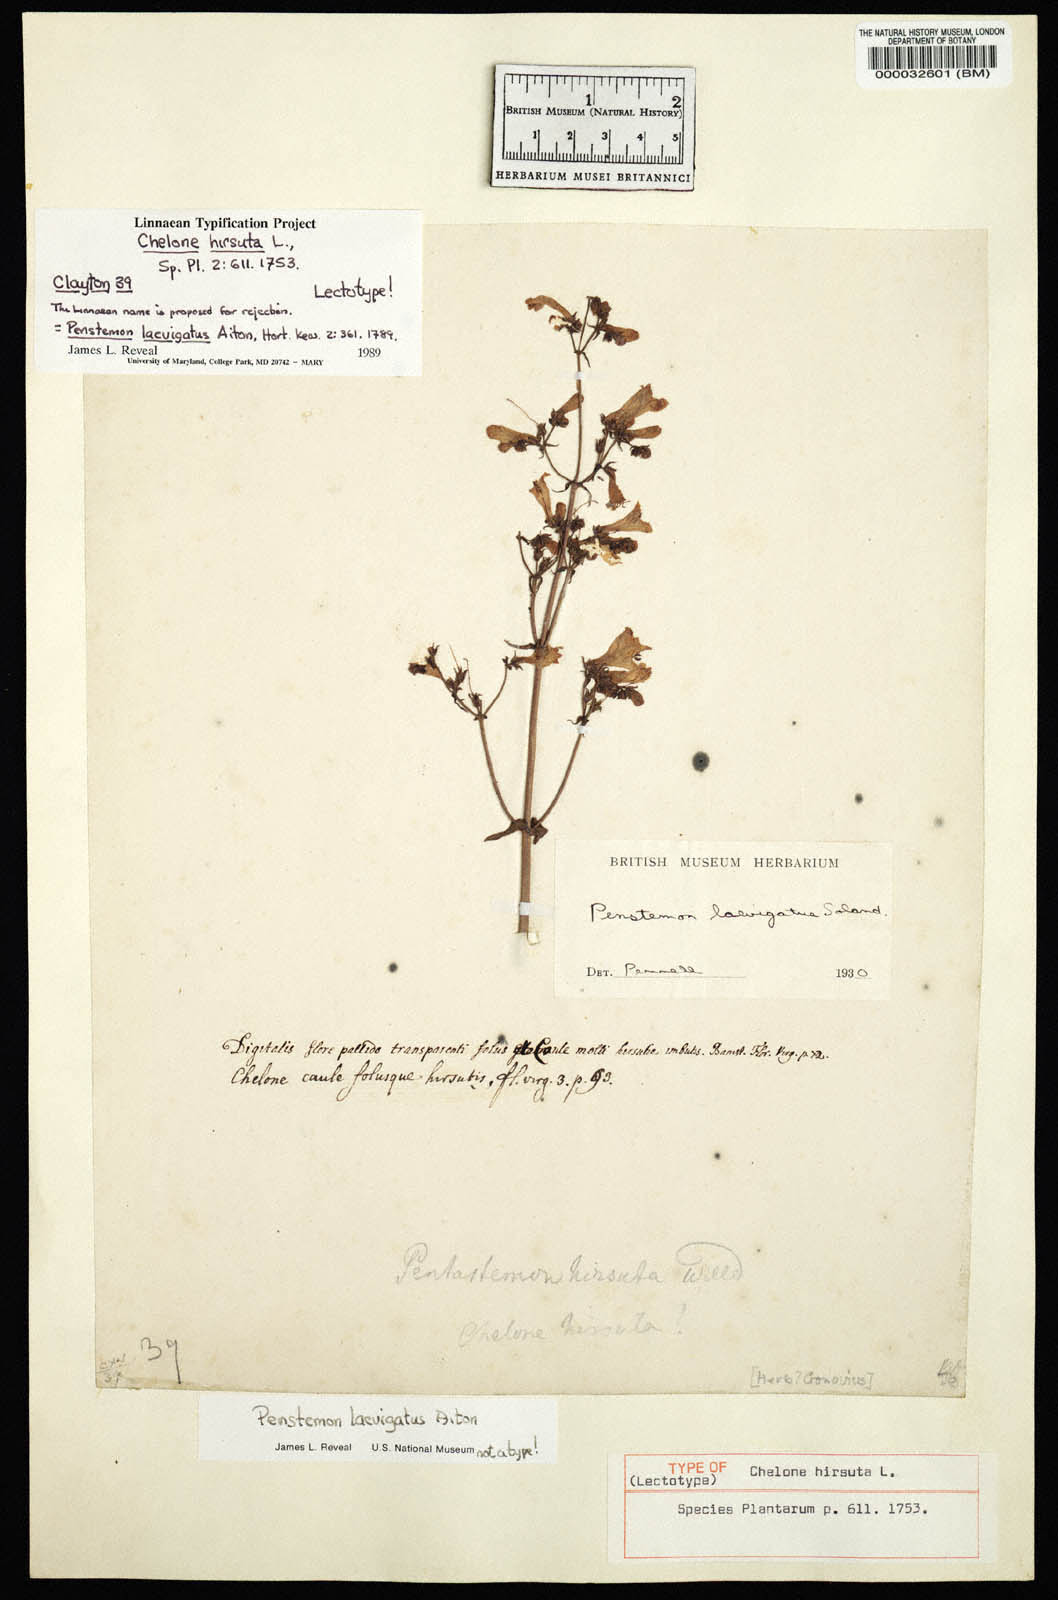 THE NATURAL HISTORY MUSEUM, LONDON
DEPARTMENT OF BOTANY
000032601 (BM)
1 2
BRITISH MUSEUM (NATURAL HISTORY)
1 2 3 4 5
HERBARIUM MUSEI BRITANNICI
Linnaean Typification Project
Chelone hirsuta L.,
Sp. Pl. 2: 611. 1753.
Clayton 39
Lectotype!
The Linnaean name is proposed for rejection.
= Penstemon laevigatus Aiton, Hort. Kew. 2: 361. 1789.
James L. Reveal 1989
University of Maryland, College Park, MD 20742 – MARY
BRITISH MUSEUM HERBARIUM
Penstemon laevigatus Soland.
DET. Pennell 1930
Digitalis flore pallido transparenti foliis caule molli hirsutie imbutis. Banist. Flor. Virg. p.
Chelone caule foliisque hirsutis, fl. virg. 3. p.
Pentastemon hirsuta Willd
Chelone hirsuta!
39
[Herb? Gronovius]
Penstemon laevigatus Aiton
James L. Reveal U.S. National Museum not a type!
TYPE OF Chelone hirsuta L.
(Lectotype)
Species Plantarum p. 611. 1753.